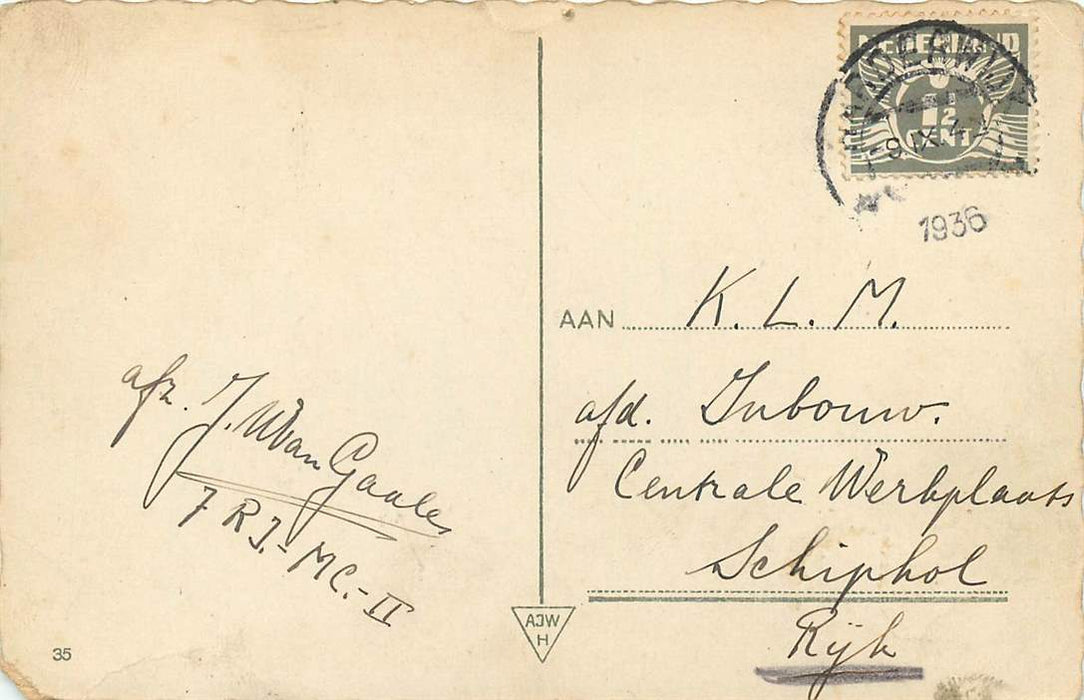 NEDERLAND
1½
CENT
HARDERWIJK
9 IX. 4
1936
AAN K. L. M.
afd. Inbouw.
Centrale Werkplaats
Schiphol
Rijk
afz. J. W. van Gaalen
7 R.I.-MC.-II
AJW
H
35